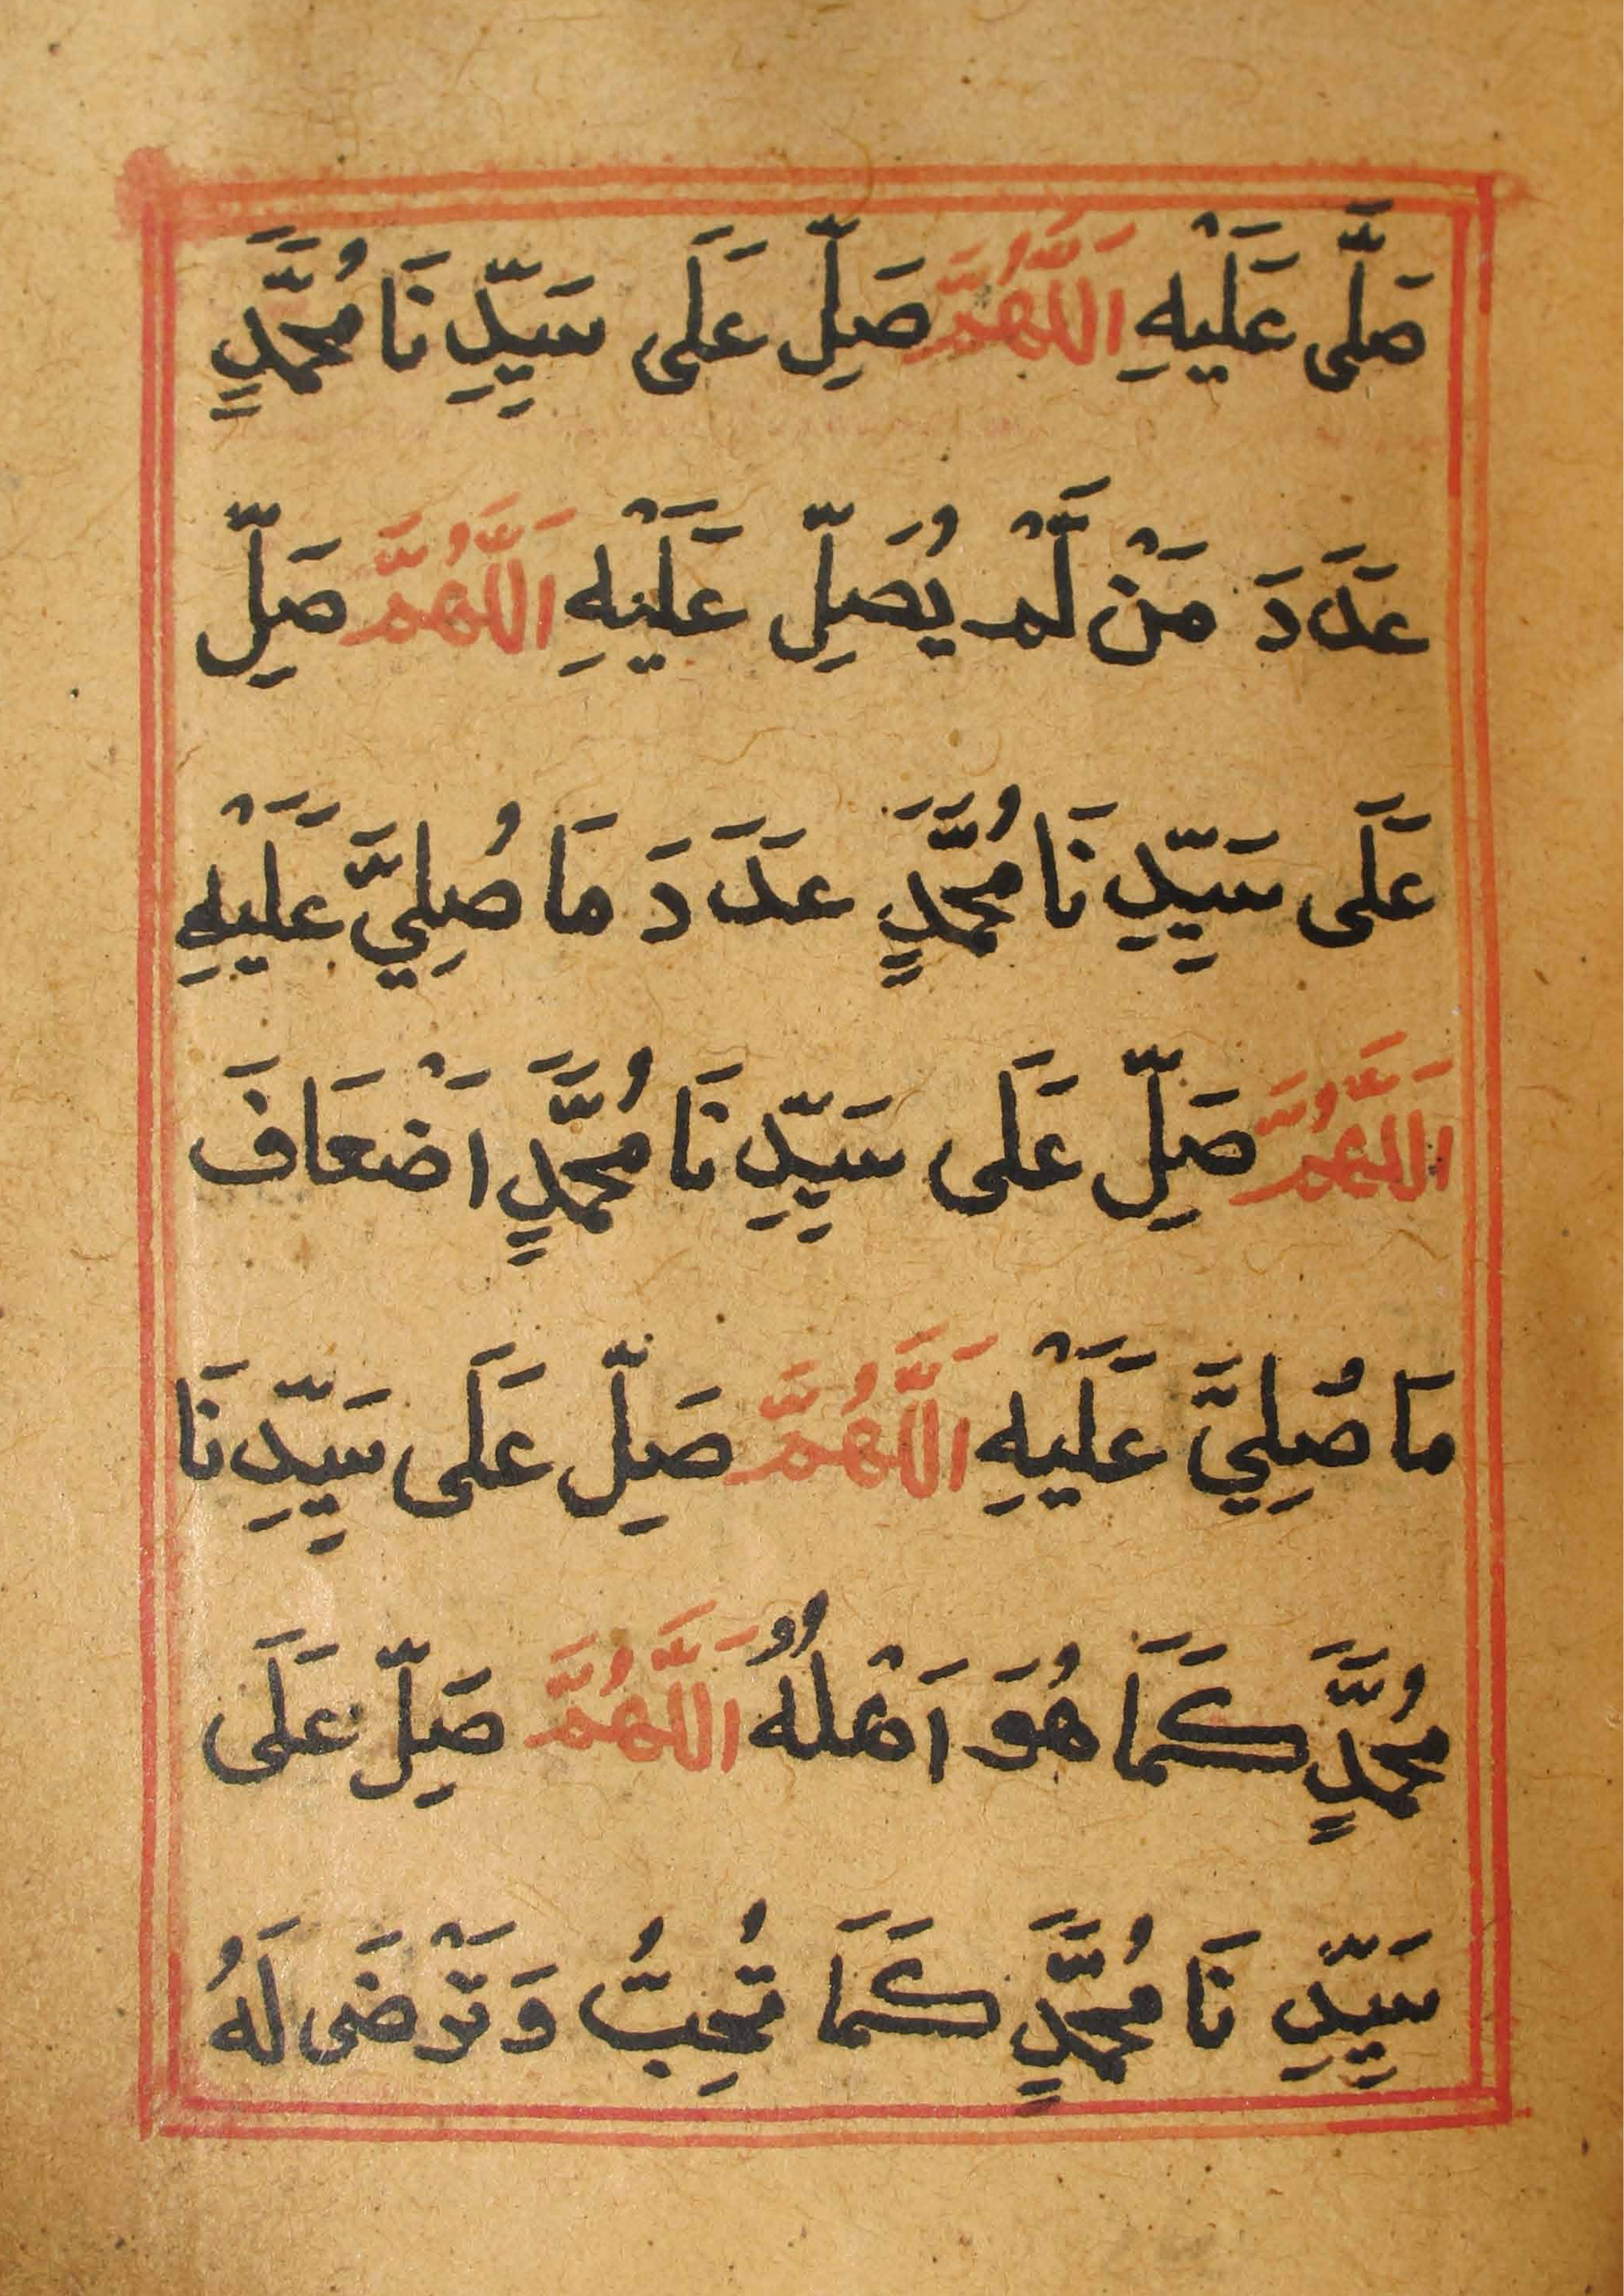 صَلَّى عَلَيْهِ اَللَّهُمَّ صَلِّ عَلَى سَيِّدِنَا مُحَمَّدٍ
عَدَدَ مَنْ لَّمْ يُصَلِّ عَلَيْهِ اَللَّهُمَّ صَلِّ
عَلَى سَيِّدِنَا مُحَمَّدٍ عَدَدَ مَا صُلِيَّ عَلَيْهِ
اَللَّهُمَّ صَلِّ عَلَى سَيِّدِنَا مُحَمَّدٍ اَضْعَافَ
مَا صُلِيَّ عَلَيْهِ اَللَّهُمَّ صَلِّ عَلَى سَيِّدِنَا
مُحَمَّدٍ كَمَا هُوَ اَهْلُهُ اَللَّهُمَّ صَلِّ عَلَى
سَيِّدِنَا مُحَمَّدٍ كَمَا تُحِبُّ وَتَرْضَى لَهُ